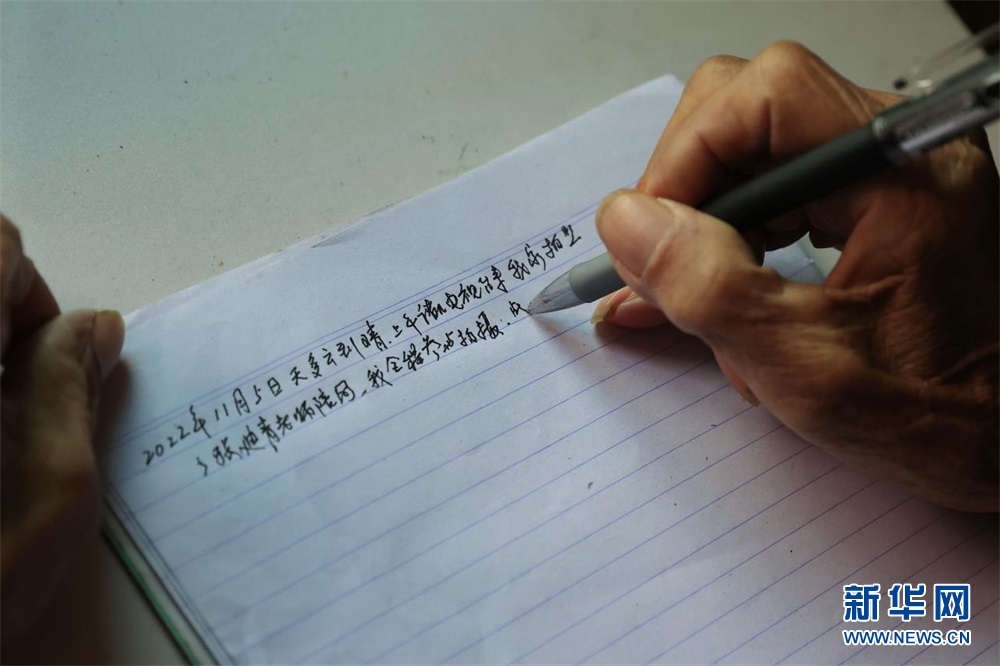 2022年11月5日 天多云到晴.上午 电视台来我家拍
张 青老师陪同.我全程参与拍摄.
新华网
WWW.NEWS.CN